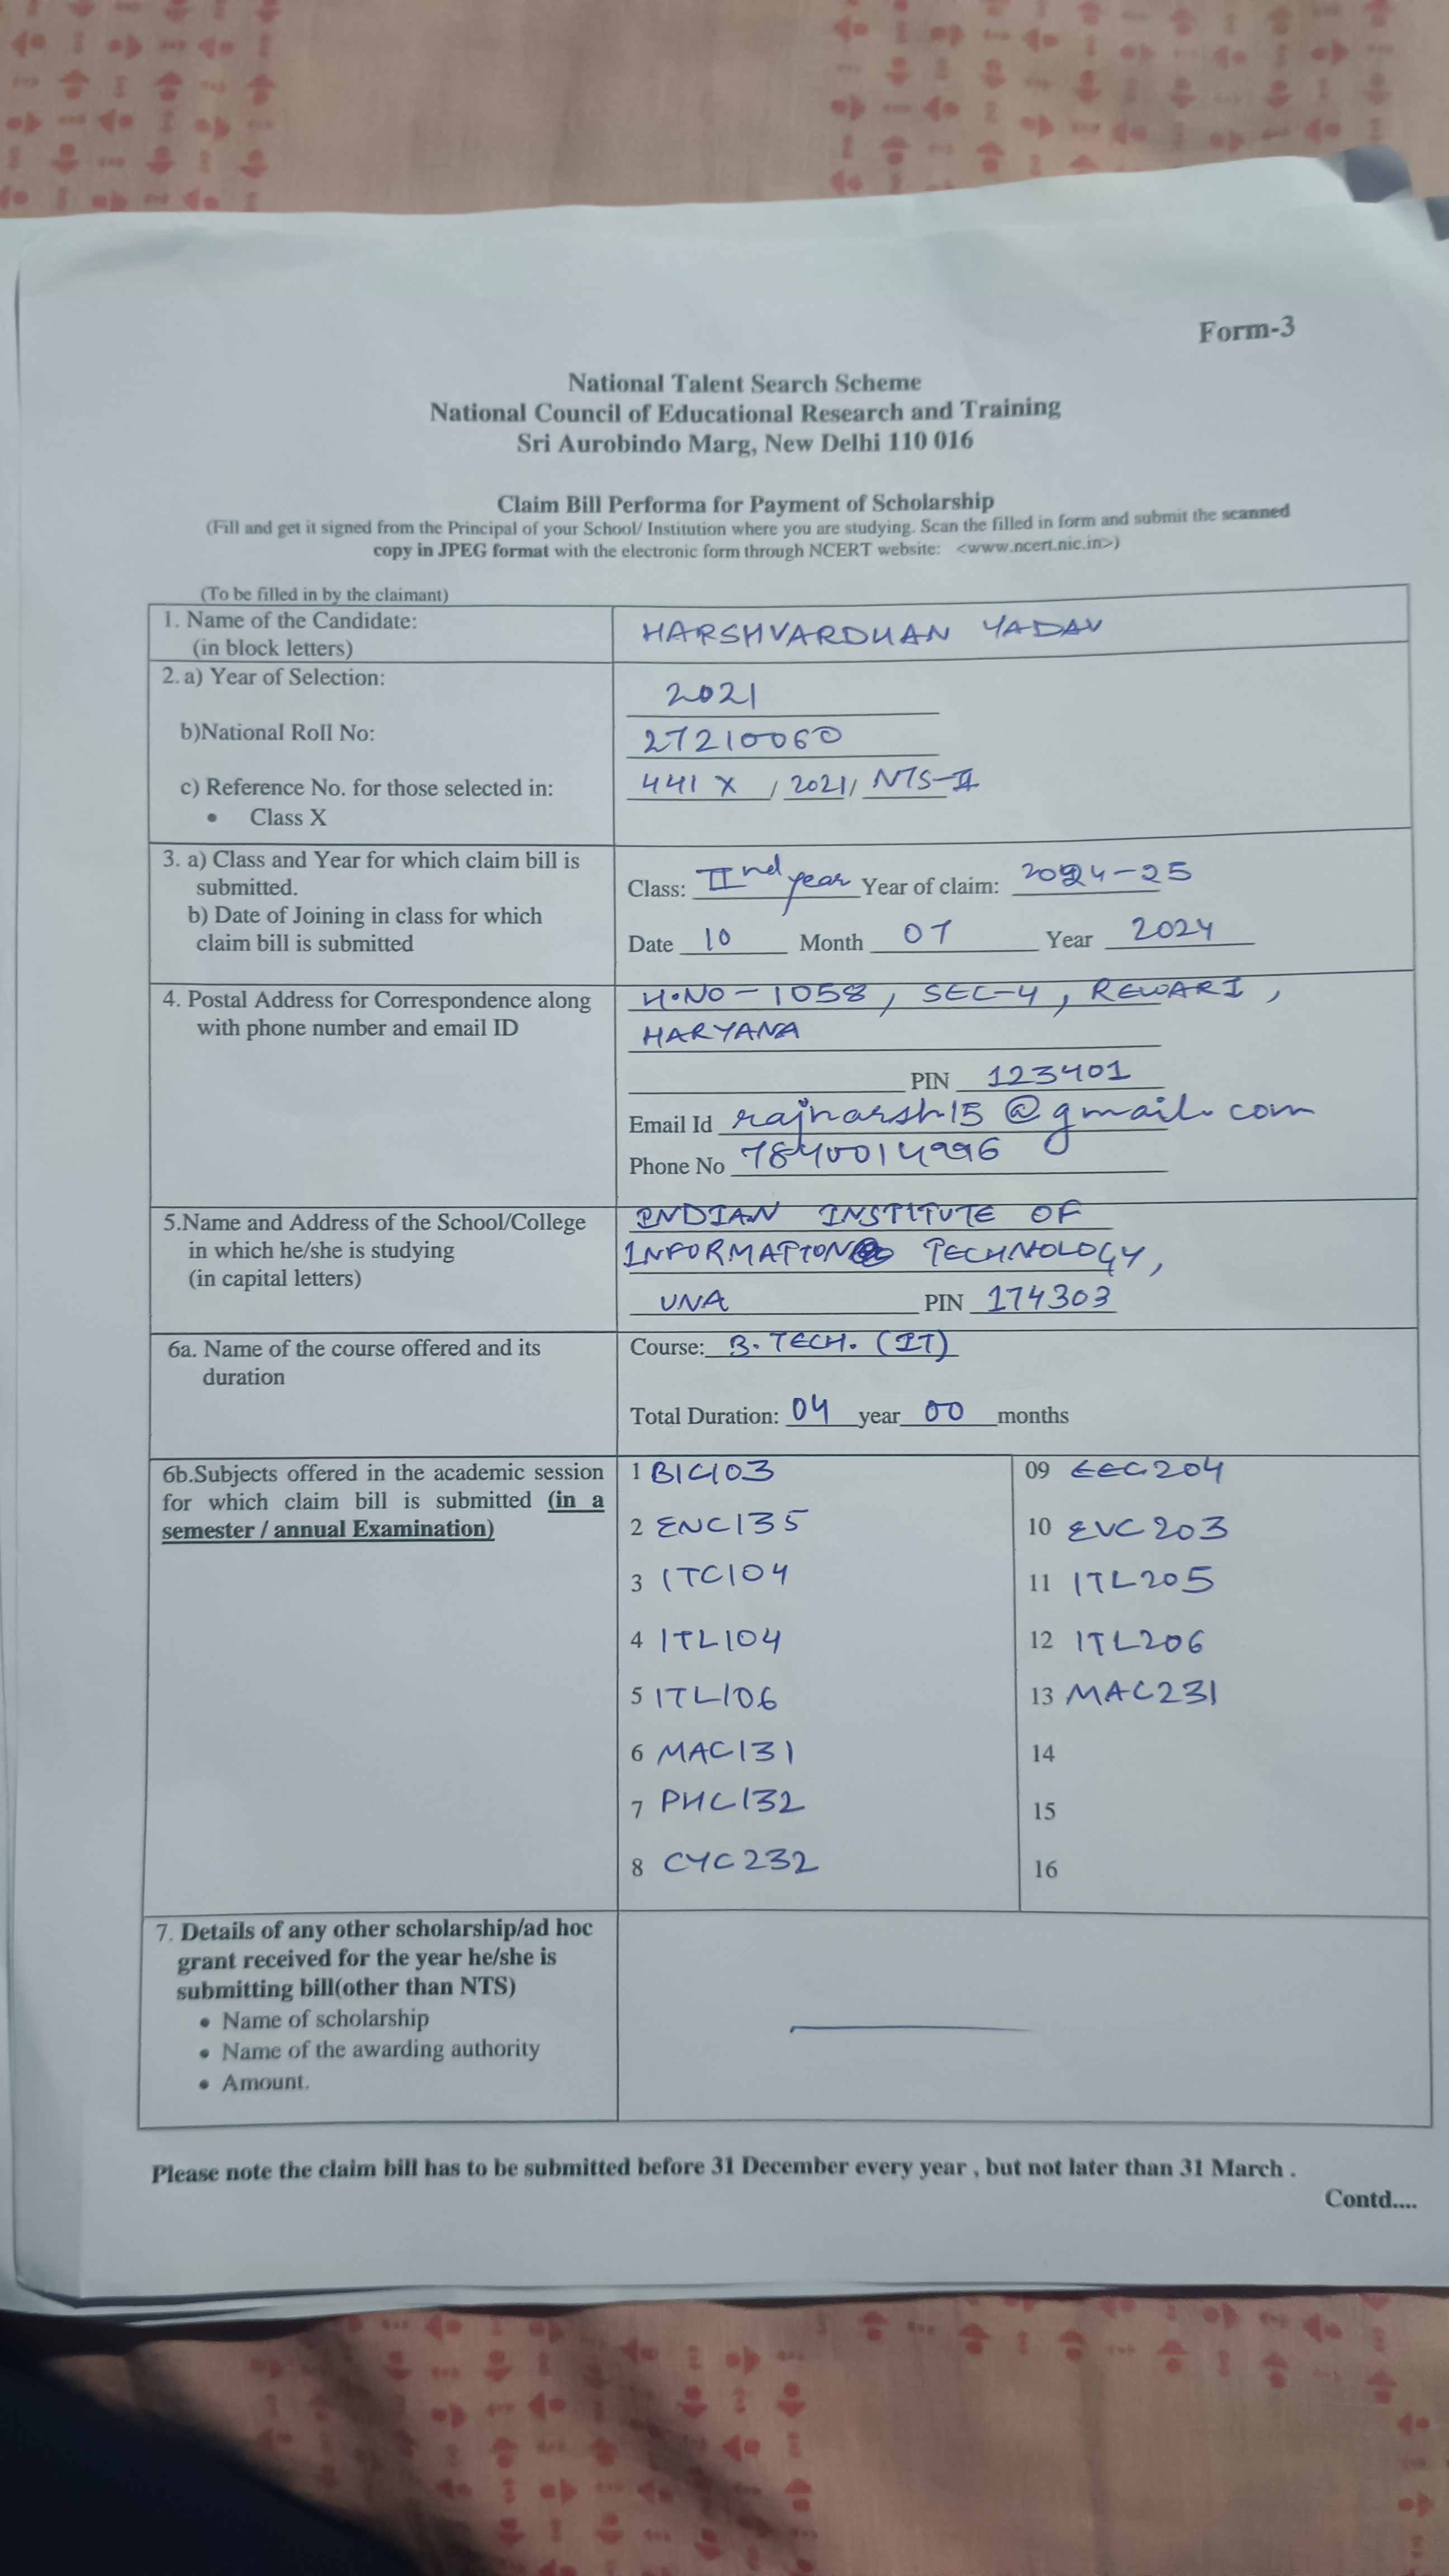 Form-3
National Talent Search Scheme
National Council of Educational Research and Training
Sri Aurobindo Marg, New Delhi 110 016
Claim Bill Performa for Payment of Scholarship
(Fill and get it signed from the Principal of your School/ Institution where you are studying. Scan the filled in form and submit the scanned
copy in JPEG format with the electronic form through NCERT website: <www.ncert.nic.in>)
(To be filled in by the claimant)
1. Name of the Candidate:
(in block letters)
HARSHVARDHAN YADAV
2. a) Year of Selection:
2021
b)National Roll No:
27210060
c) Reference No. for those selected in:
• Class X
441 X / 2021/ NTS-II
3. a) Class and Year for which claim bill is
submitted.
Class: IInd year Year of claim: 2024-25
b) Date of Joining in class for which
claim bill is submitted
Date 10 Month 07 Year 2024
4. Postal Address for Correspondence along
with phone number and email ID
H.NO-1058, SEC-4, REWARI,
HARYANA
PIN 123401
Email Id rajharsh15@gmail.com
Phone No 7840014996
5.Name and Address of the School/College
in which he/she is studying
(in capital letters)
INDIAN INSTITUTE OF
INFORMATION TECHNOLOGY,
UNA PIN 174303
6a. Name of the course offered and its
duration
Course: B. TECH. (IT)
Total Duration: 04 year 00 months
6b.Subjects offered in the academic session
for which claim bill is submitted (in a
semester / annual Examination)
1 BIC103
2 ENC135
3 ITC104
4 ITL104
5 ITL106
6 MAC131
7 PHC132
8 CYC232
09 EEC204
10 EVC203
11 ITL205
12 ITL206
13 MAC231
14
15
16
7. Details of any other scholarship/ad hoc
grant received for the year he/she is
submitting bill(other than NTS)
• Name of scholarship
• Name of the awarding authority
• Amount.
Please note the claim bill has to be submitted before 31 December every year , but not later than 31 March .
Contd....